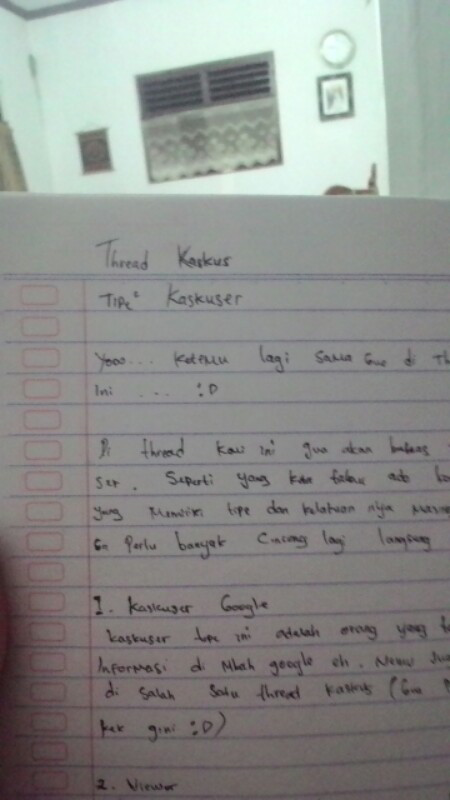 Thread Kaskus
Tipe² Kaskuser
Yooo... Ketemu lagi sama gue di Th
ini ... :D
Di thread kaw ini gua akan bahas
ser. Seperti yang kita ado
yang Memiliki tipe dan kelakuan nya
Gn Perlu banyak Cincong lagi langsung
1. Kaskuser Google
kaskuser tipe ini adalah orang yang
Informasi di Mbah google eh. Nemu
di Salah Satu thread kaskus (Gua
Kek gini :D)
2. Viewer